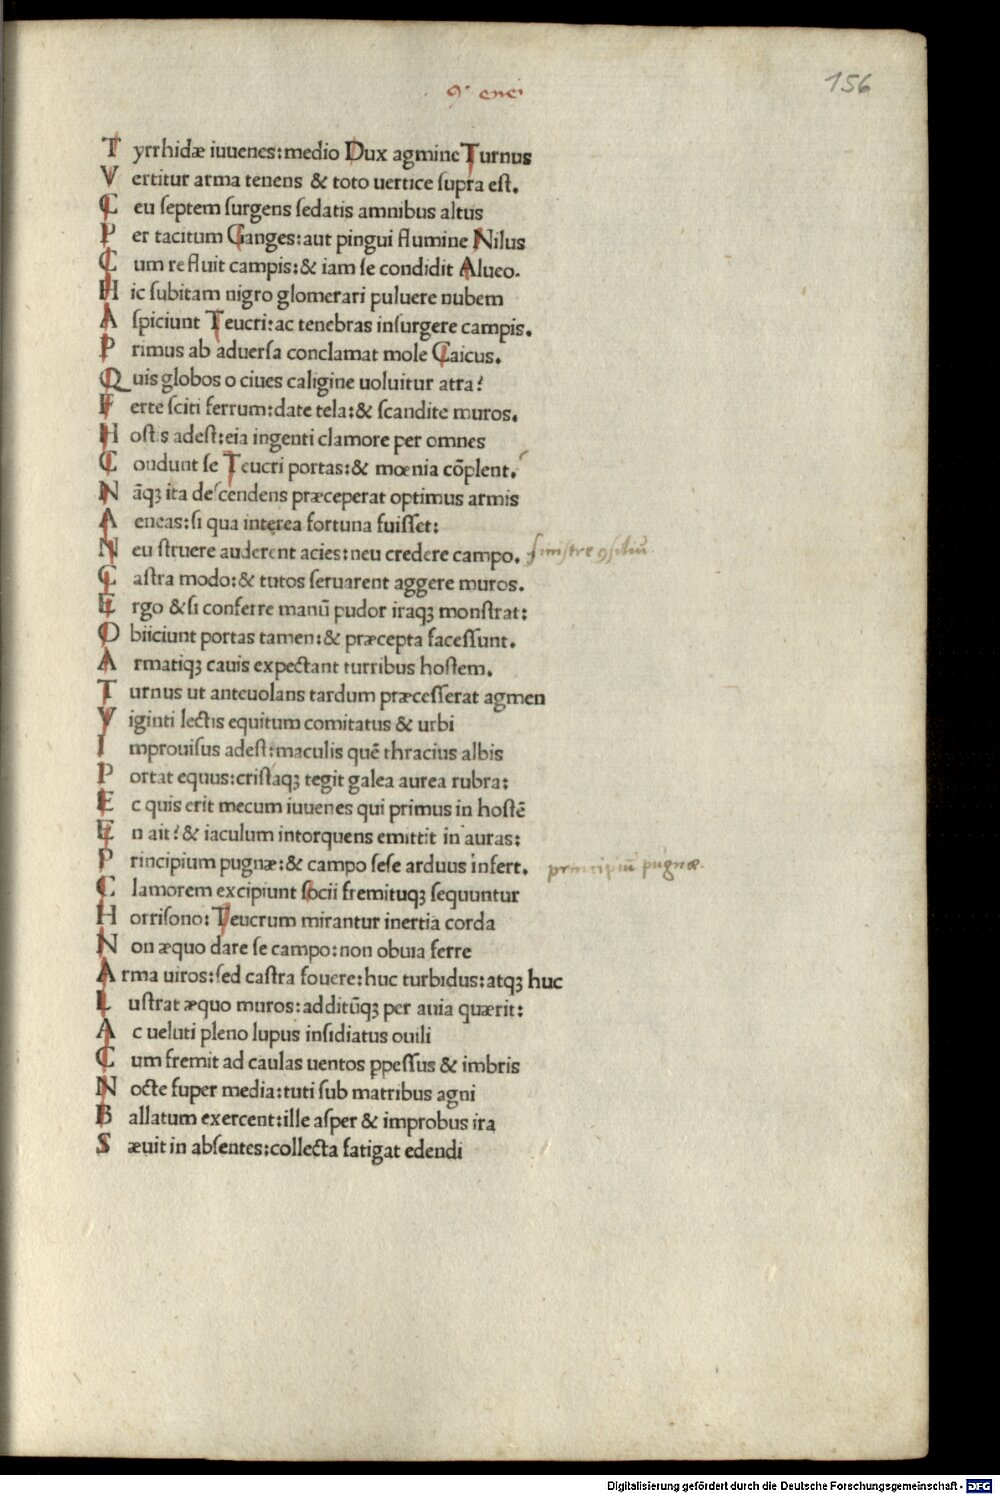 9ᵒ enei
156
T yrrhidæ iuuenes:medio Dux agmine Turnus
V ertitur arma tenens & toto uertice ſupra eſt.
C eu ſeptem ſurgens ſedatis amnibus altus
P er tacitum Ganges:aut pingui flumine Nilus
C um refluit campis:& iam ſe condidit Alueo.
H ic ſubitam nigro glomerari puluere nubem
A ſpiciunt Teucri:ac tenebras inſurgere campis.
P rimus ab aduerſa conclamat mole Caicus.
Q uis globos o ciues caligine uoluitur atra?
F erte ſciti ferrum:date tela:& ſcandite muros.
H oſtis adeſt:eia ingenti clamore per omnes
C ondunt ſe Teucri portas:& mœnia cōplent.
N āqꝫ ita deſcendens præceperat optimus armis
A eneas:ſi qua interea fortuna fuiſſet:
N eu ſtruere auderent acies:neu credere campo.
C aſtra modo:& tutos ſeruarent aggere muros.
E rgo & ſi conferre manū pudor iraqꝫ monſtrat:
O biiciunt portas tamen:& præcepta faceſſunt.
A rmatiqꝫ cauis expectant turribus hoſtem.
T urnus ut anteuolans tardum præceſſerat agmen
V iginti lectis equitum comitatus & urbi
I mprouiſus adeſt:maculis quē thracius albis
P ortat equus:criſtaqꝫ tegit galea aurea rubra:
E c quis erit mecum iuuenes qui primus in hoſtē
E n ait? & iaculum intorquens emittit in auras:
P rincipium pugnæ:& campo ſeſe arduus infert.
principiū pugnæ.
C lamorem excipiunt ſocii fremituqꝫ ſequuntur
H orriſono: Teucrum mirantur inertia corda
N on æquo dare ſe campo:non obuia ferre
A rma uiros:ſed caſtra fouere:huc turbidus:atqꝫ huc
L uſtrat æquo muros:additūqꝫ per auia quærit:
A c ueluti pleno lupus inſidiatus ouili
C um fremit ad caulas uentos ꝑpeſſus & imbris
N octe ſuper media:tuti ſub matribus agni
B allatum exercent:ille aſper & improbus ira
S æuit in abſentes:collecta fatigat edendi
Digitalisierung gefördert durch die Deutsche Forschungsgemeinschaft - DFG